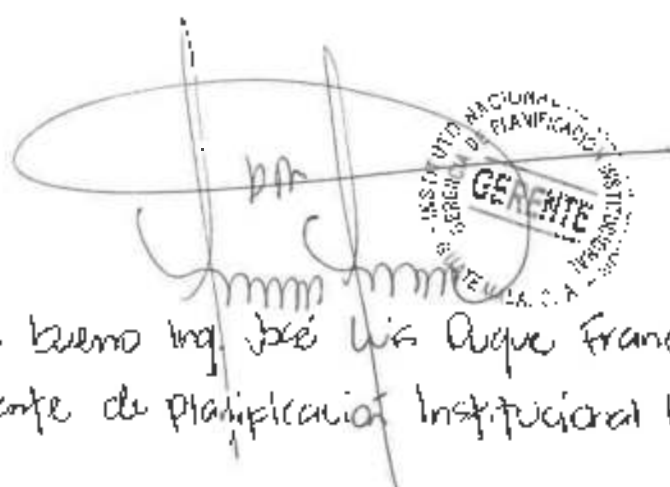 INSTITUTO NACIONAL
GERENCIA DE PLANIFICACIÓN INSTITUCIONAL
GERENTE
bueno Ing. José Luis Duque Franc
de planificación Institucional